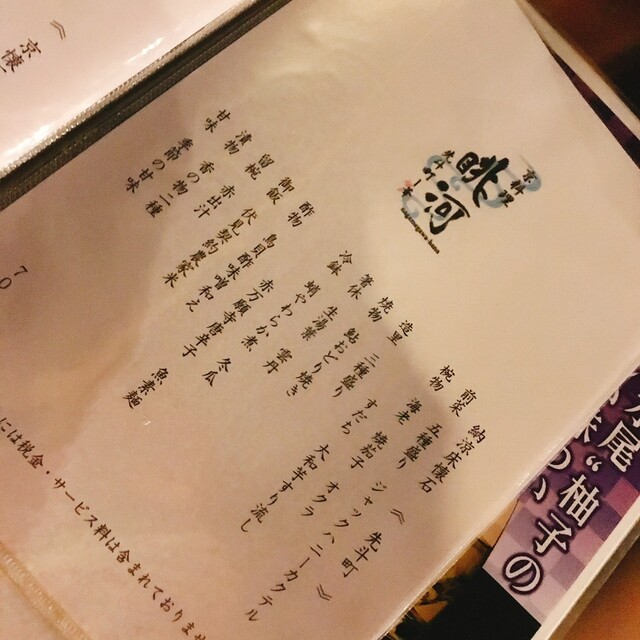 京料理
眺河
納涼床懐石 《 先斗町 》
前菜 五種盛り ジャックハニーカクテル
椀物 海老 焼茄子 オクラ 大和芋すり流し
造里 三種盛り すだち
焼物 鮎おどり焼き
箸休 生湯葉 雲丹
冷鉢 蛸やわらか煮 赤万願寺唐辛子 冬瓜 魚素麺
酢物 鳥貝酢味噌和え
御飯 伏見契約農家米
留椀 赤出汁
漬物 香の物二種
甘味 季節の甘味
70
には税金・サービス料は含まれておりませ
《 京懐
水尾“柚子の